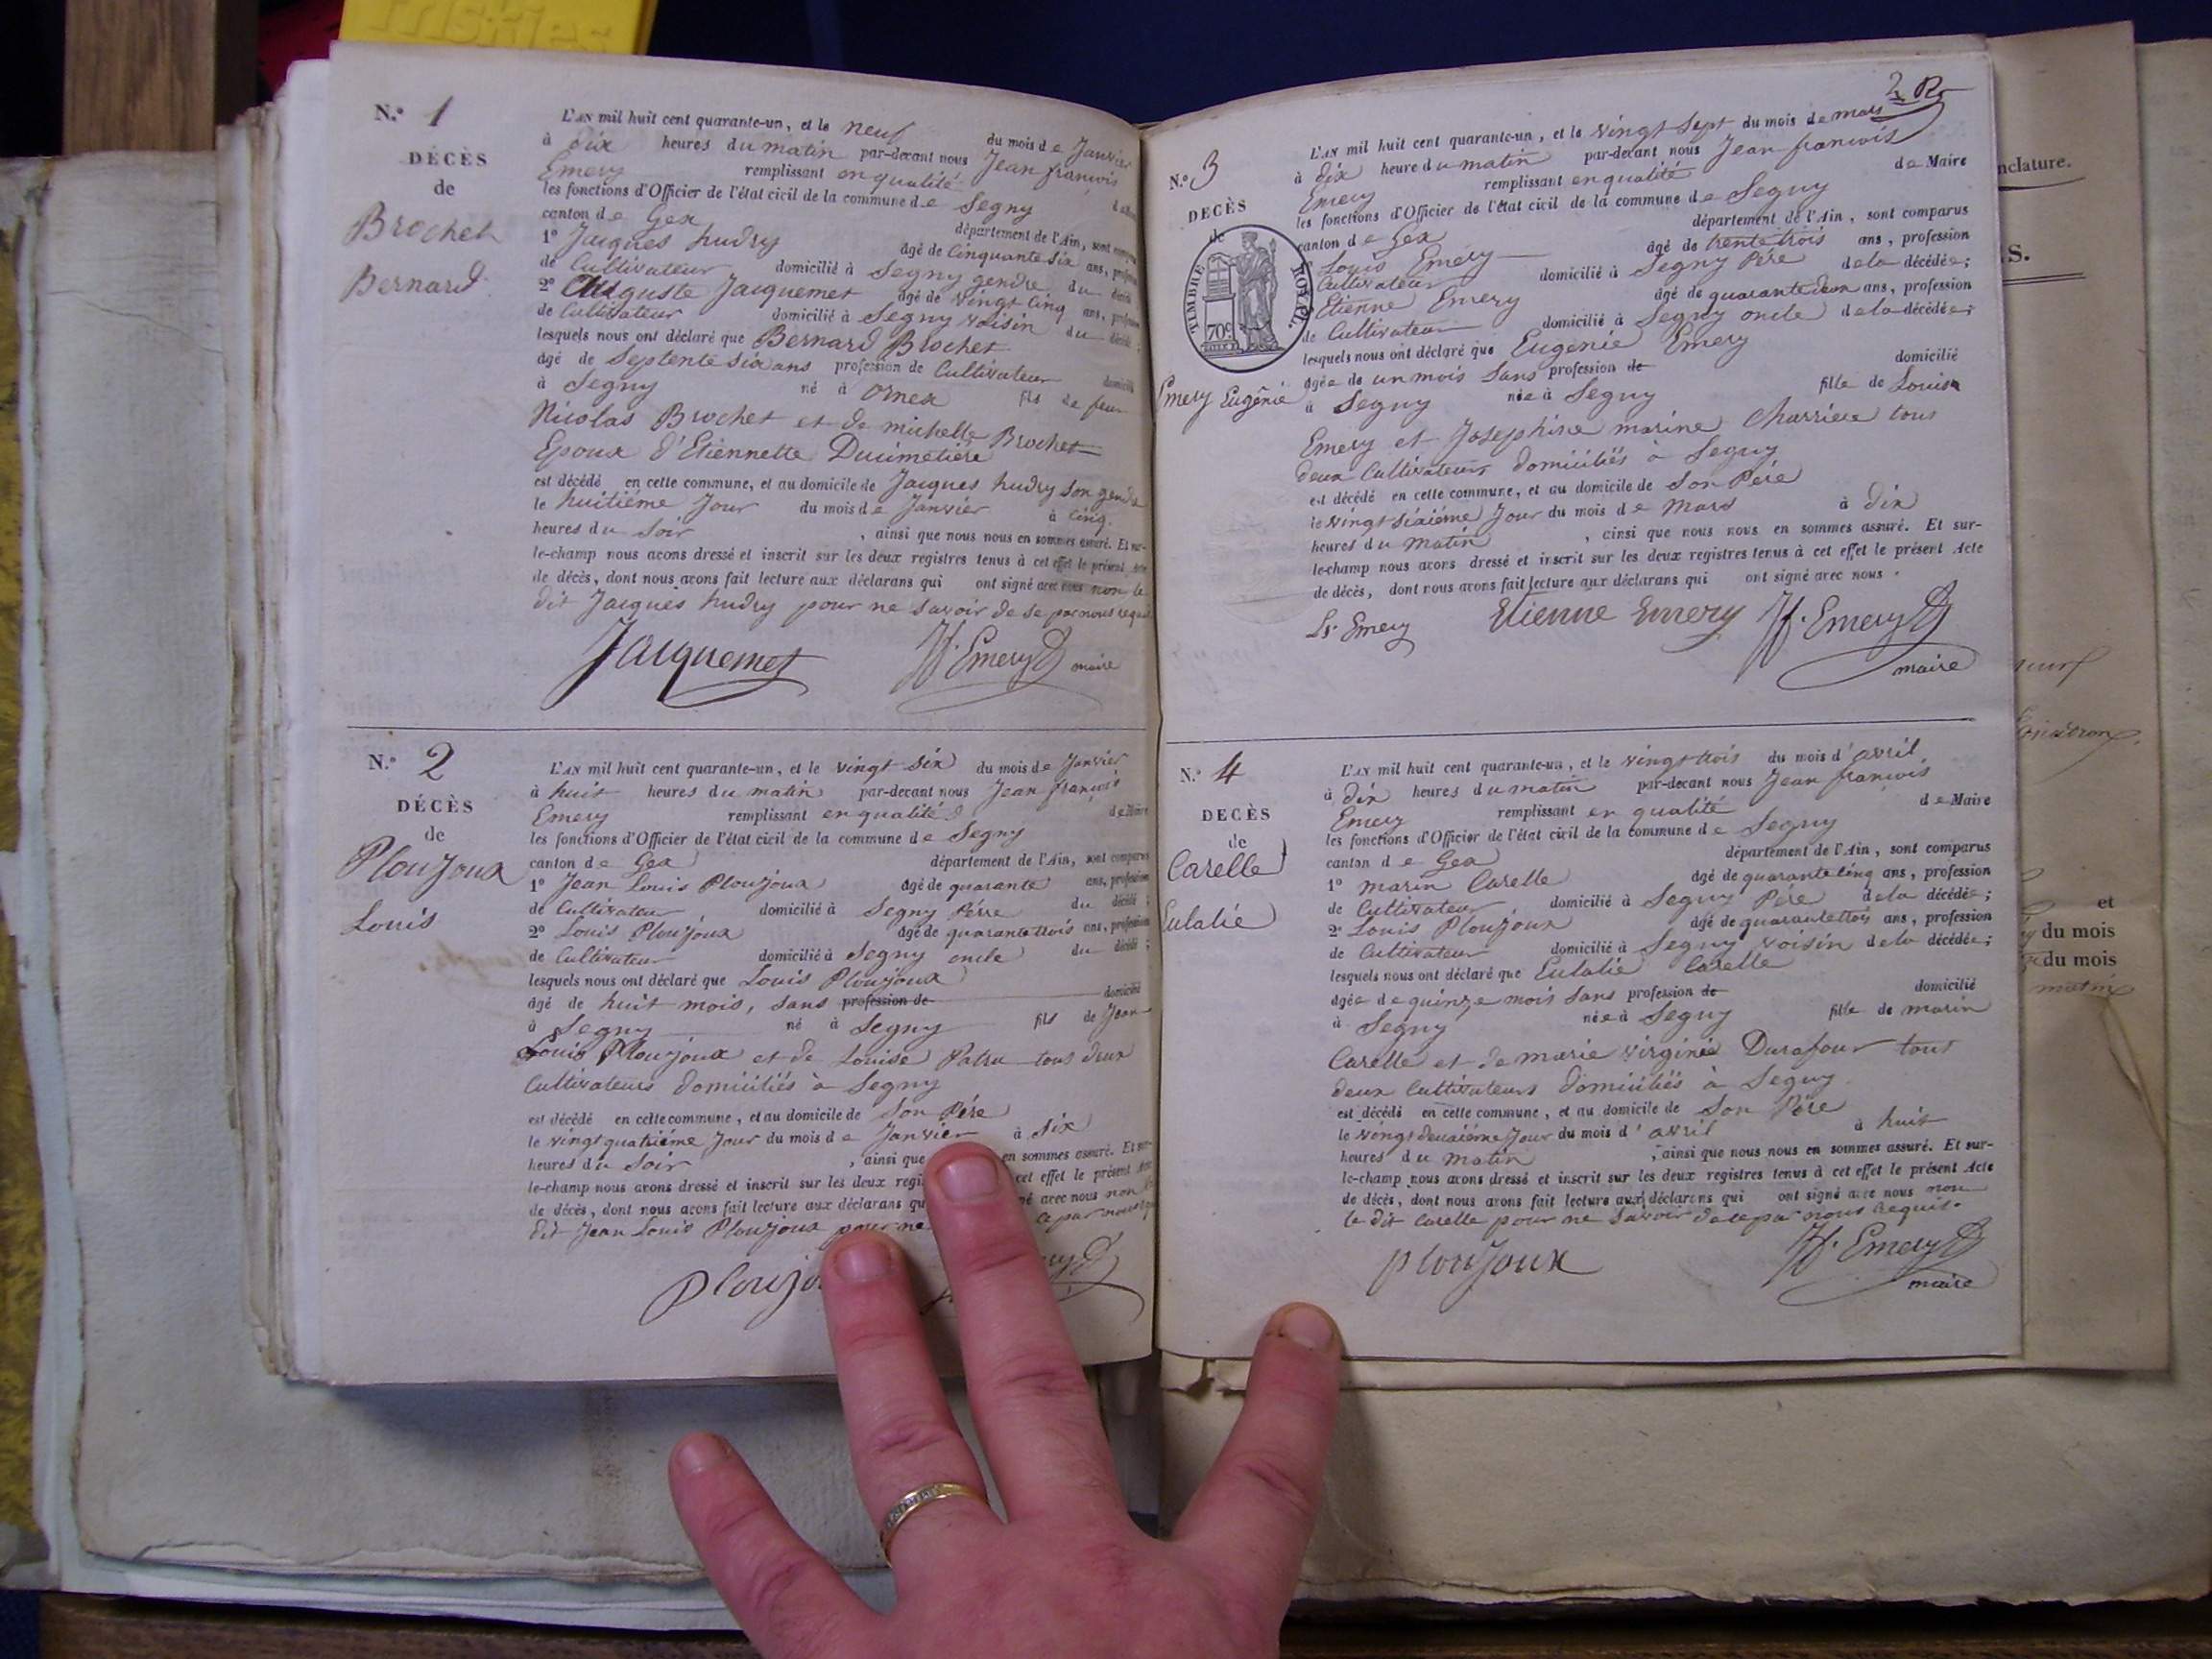 friskies
N.º 1
DÉCÈS
de
Brochet
Bernard
L'AN mil huit cent quarante-un, et le neuf du mois de Janvier
à dix heures du matin par-devant nous Jean francois
Emery remplissant en qualité
les fonctions d'Officier de l'état civil de la commune de Segny
canton de Gex département de l'Ain, sont
1º Jacques hudry âgé de Cinquante six ans,
de Cultivateur domicilié à Segny gendre du
2º Auguste Jacquemet âgé de vingt cinq ans,
de Cultivateur domicilié à Segny voisin du
lesquels nous ont déclaré que Bernard Brochet
âgé de Septente six ans profession de Cultivateur
à Segny né à Ornex fils de feu
Nicolas Brochet et de michelle Brochet
Epoux d'Etiennette Ducimetière
est décédé en cette commune, et au domicile de Jacques hudry son gendre
le huitiéme Jour du mois de Janvier à cinq
heures du Soir , ainsi que nous nous en sommes assuré. Et sur-
le-champ nous avons dressé et inscrit sur les deux registres tenus à cet effet le présent Acte
de décès, dont nous avons fait lecture aux déclarans qui ont signé avec nous non le
dit Jacques hudry pour ne Savoir de ce par nous requis
Jacquemet Jf. Emery maire
N.º 2
DÉCÈS
de
Ploujoux
Louis
L'AN mil huit cent quarante-un, et le vingt six du mois de Janvier
à huit heures du matin par-devant nous Jean françois
Emery remplissant en qualité de Maire
les fonctions d'Officier de l'état civil de la commune de Segny
canton de Gex département de l'Ain, sont comparus
1º Jean Louis Ploujoux âgé de quarante ans, profession
de Cultivateur domicilié à Segny Pére du décédé;
2º Louis Ploujoux âgé de quarante trois ans, profession
de Cultivateur domicilié à Segny oncle du décédé;
lesquels nous ont déclaré que Louis Ploujoux
âgé de huit mois, sans profession de domicilié
à Segny né à Segny fils de Jean
Louis Ploujoux et de Louise Patru tous deux
Cultivateurs domiciliés à Segny
est décédé en cette commune, et au domicile de Son Pére
le vingt quatriéme Jour du mois de Janvier à Six
heures du Soir , ainsi que en sommes assuré. Et sur-
le-champ nous avons dressé et inscrit sur les deux regi cet effet le présent Acte
de décès, dont nous avons fait lecture aux déclarans qu né avec nous non
dit Jean Louis Ploujoux pour ne ce par nous
Ploujo
2
N.º 3
DÉCÈS
de
TIMBRE ROYAL.
70c
Emery Eugénie
L'AN mil huit cent quarante-un, et le vingt Sept du mois de mars
à dix heure du matin par-devant nous Jean francois
Emery remplissant en qualité de Maire
les fonctions d'Officier de l'état civil de la commune de Segny
canton de Gex département de l'Ain, sont comparus
Louis Emery âgé de trente trois ans, profession
Cultivateur domicilié à Segny Pére de la décédée;
Etienne Emery âgé de quarante deux ans, profession
de Cultivateur domicilié à Segny oncle de la décédée;
lesquels nous ont déclaré que Eugénie Emery
âgée de un mois Sans profession de domicilié
à Segny née à Segny fille de Louis
Emery et Josephine marine Charriere tous
deux Cultivateurs domiciliés à Segny
est décédé en cette commune, et au domicile de Son Pére
le vingt Sixiéme Jour du mois de Mars à dix
heures du Matin , ainsi que nous nous en sommes assuré. Et sur-
le-champ nous avons dressé et inscrit sur les deux registres tenus à cet effet le présent Acte
de décès, dont nous avons fait lecture aux déclarans qui ont signé avec nous.
Ls. Emery Etienne Emery Jf. Emery
maire
N.º 4
DÉCÈS
de
Carelle
Eulalie
L'AN mil huit cent quarante-un, et le vingt trois du mois d'avril
à dix heures du matin par-devant nous Jean francois
Emery remplissant en qualité de Maire
les fonctions d'Officier de l'état civil de la commune de Segny
canton de Gex département de l'Ain, sont comparus
1º marin Carelle âgé de quarante cinq ans, profession
de Cultivateur domicilié à Segny Pére de la décédée;
2º Louis Ploujoux âgé de quarante trois ans, profession
de Cultivateur domicilié à Segny voisin de la décédée;
lesquels nous ont déclaré que Eulalie Carelle
âgée de quinze mois Sans profession de domicilié
à Segny née à Segny fille de marin
Carelle et de marie virginie Durafour tous
deux Cultivateurs domiciliés à Segny
est décédé en cette commune, et au domicile de Son Pére
le vingt deuxiéme Jour du mois d'avril à huit
heures du matin , ainsi que nous nous en sommes assuré. Et sur-
le-champ nous avons dressé et inscrit sur les deux registres tenus à cet effet le présent Acte
de décès, dont nous avons fait lecture aux déclarans qui ont signé avec nous non
le dit Carelle pour ne Savoir de ce par nous Requis.
Ploujoux Jf. Emery
maire
nclature.
S.
et
du mois
du mois
matin